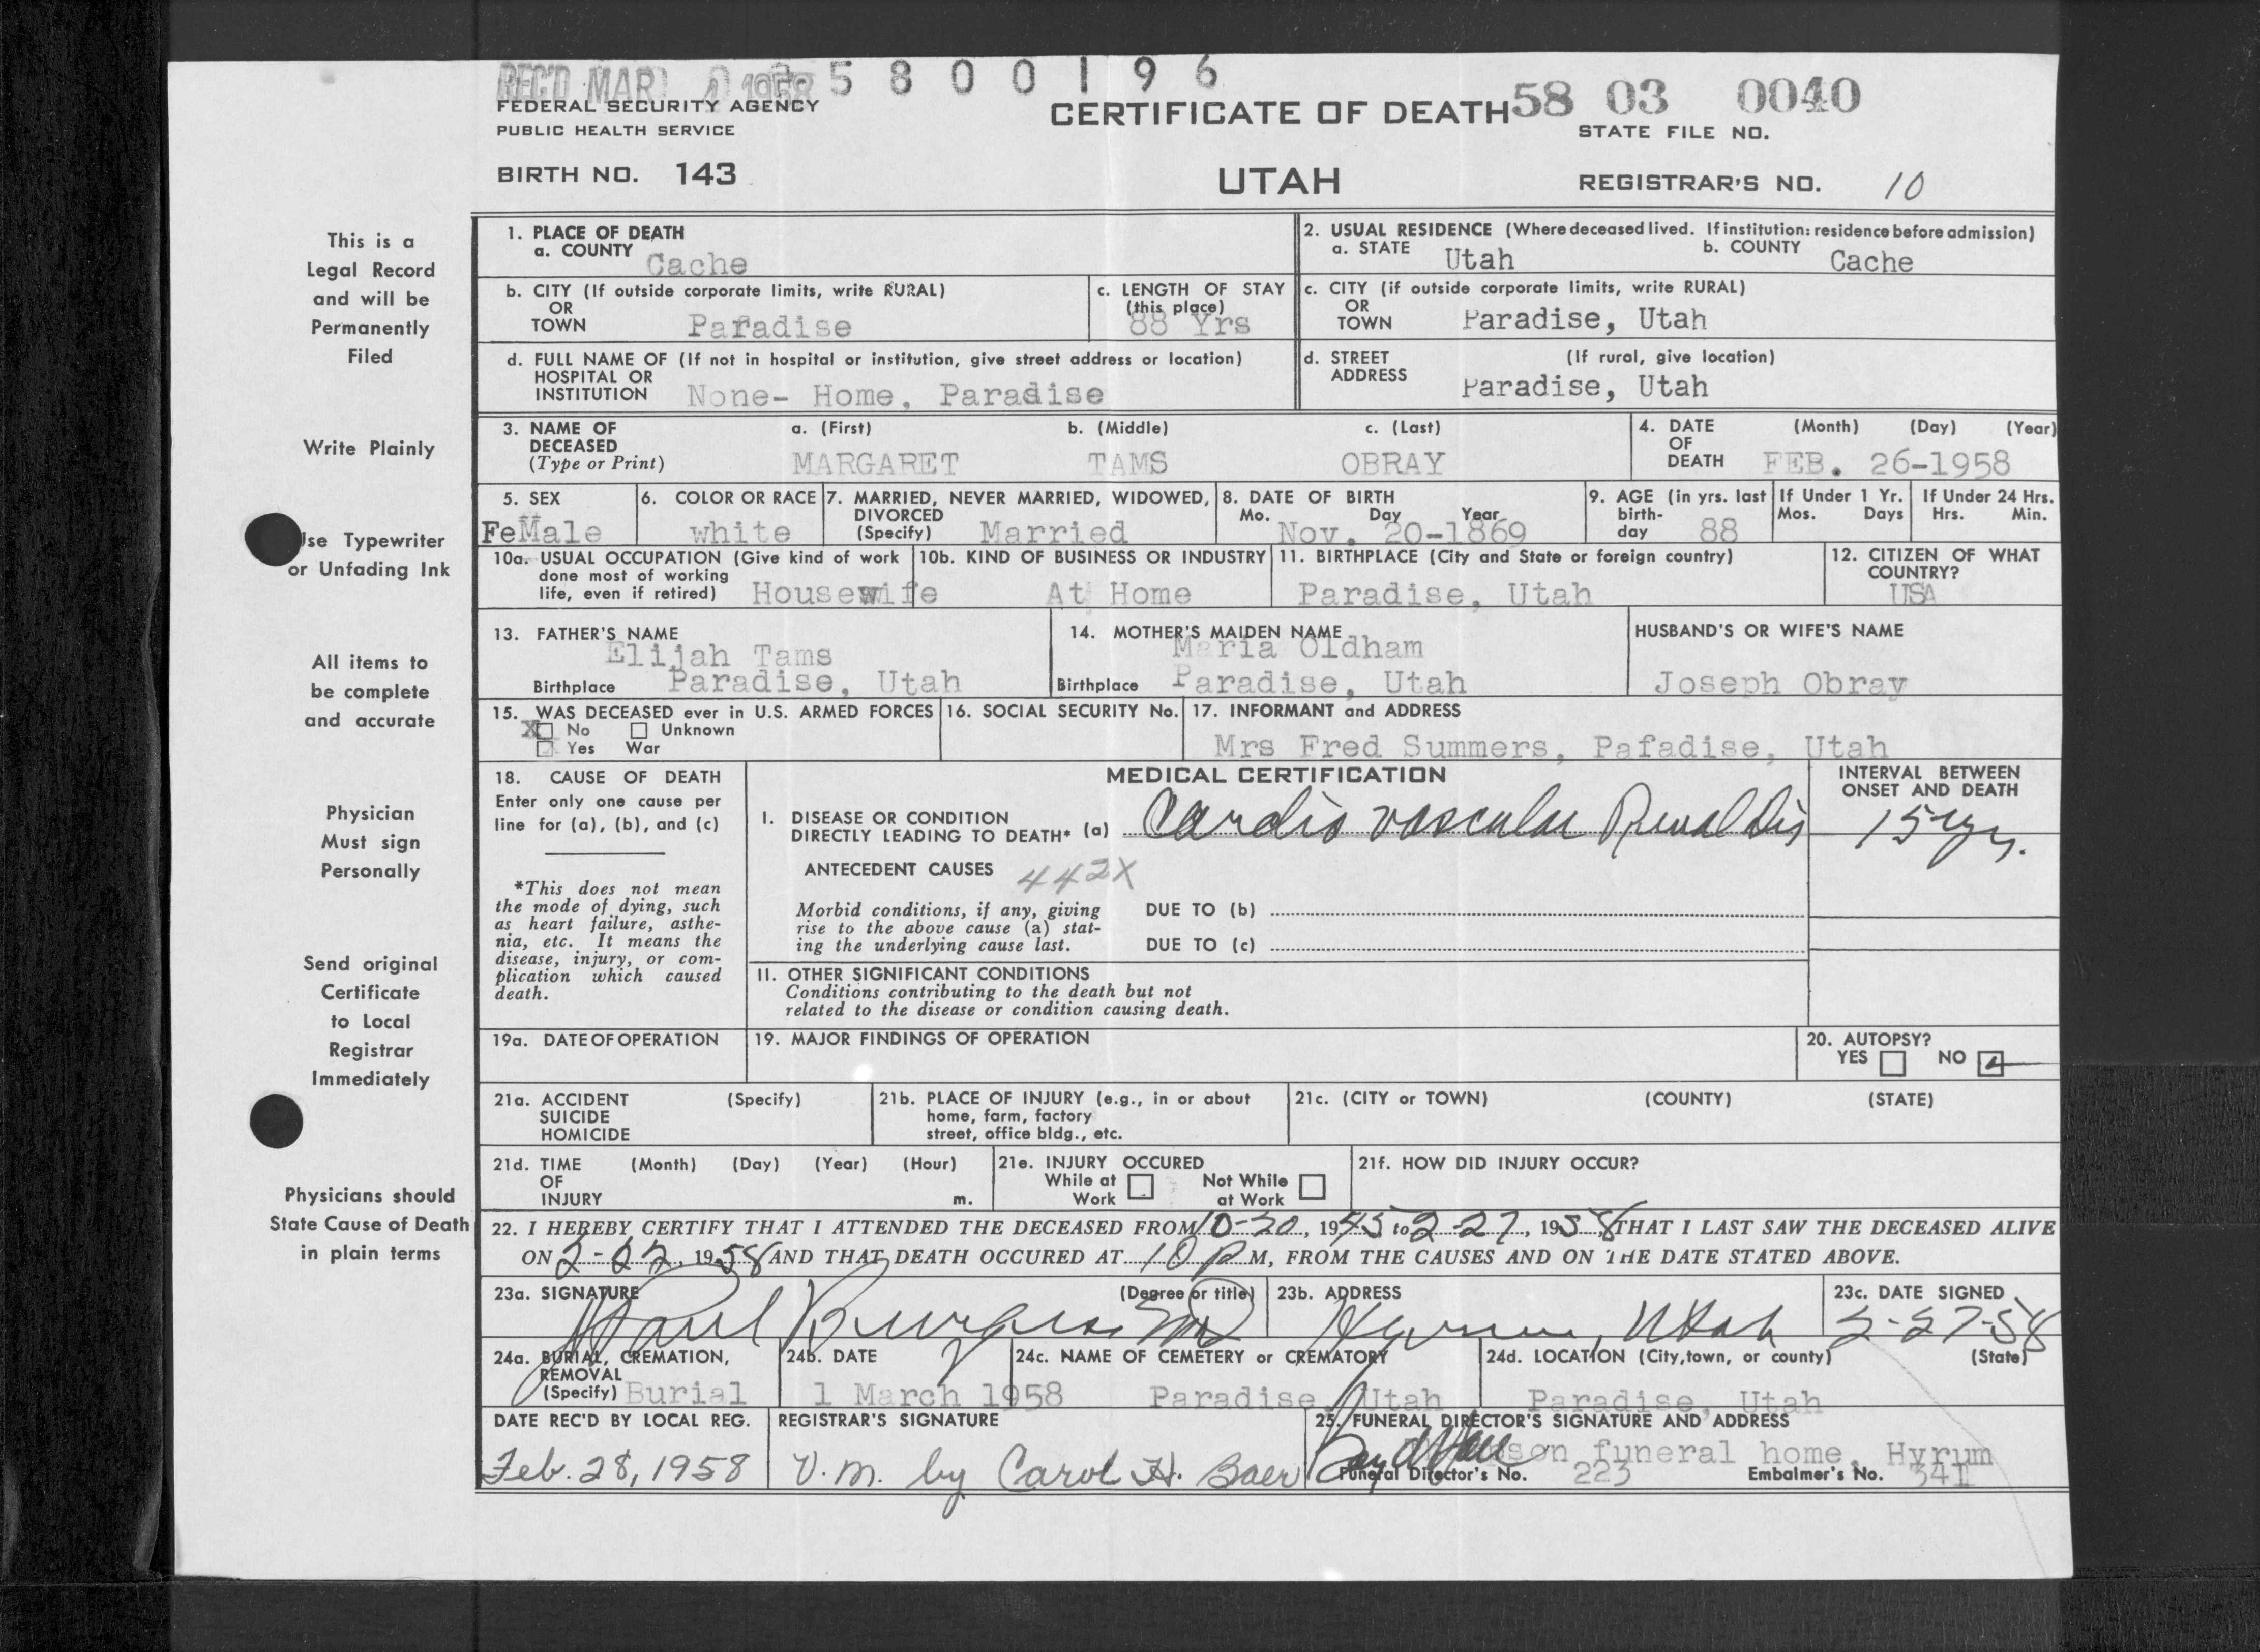 REC'D MAR 1958 5 8 0 0 1 9 6
FEDERAL SECURITY AGENCY
PUBLIC HEALTH SERVICE
CERTIFICATE OF DEATH
58 03 0040
STATE FILE NO.
BIRTH NO. 143
UTAH
REGISTRAR'S NO. 10
This is a
Legal Record
and will be
Permanently
Filed
Write Plainly
se Typewriter
or Unfading Ink
All items to
be complete
and accurate
Physician
Must sign
Personally
Send original
Certificate
to Local
Registrar
Immediately
Physicians should
State Cause of Death
in plain terms
1. PLACE OF DEATH
a. COUNTY Cache
2. USUAL RESIDENCE (Where deceased lived. If institution: residence before admission)
a. STATE Utah b. COUNTY Cache
b. CITY (If outside corporate limits, write RURAL)
OR
TOWN Paradise
c. LENGTH OF STAY
(this place)
88 Yrs
c. CITY (if outside corporate limits, write RURAL)
OR
TOWN Paradise, Utah
d. FULL NAME OF (If not in hospital or institution, give street address or location)
HOSPITAL OR
INSTITUTION None- Home, Paradise
d. STREET (If rural, give location)
ADDRESS Paradise, Utah
3. NAME OF a. (First) b. (Middle) c. (Last)
DECEASED
(Type or Print) MARGARET TAMS OBRAY
4. DATE (Month) (Day) (Year)
OF
DEATH FEB. 26-1958
5. SEX
FeMale
6. COLOR OR RACE
white
7. MARRIED, NEVER MARRIED, WIDOWED,
DIVORCED
(Specify) Married
8. DATE OF BIRTH
Mo. Day Year
Nov. 20-1869
9. AGE (in yrs. last
birth-
day 88
If Under 1 Yr.
Mos. Days
If Under 24 Hrs.
Hrs. Min.
10a. USUAL OCCUPATION (Give kind of work
done most of working
life, even if retired) Housewife
10b. KIND OF BUSINESS OR INDUSTRY
At Home
11. BIRTHPLACE (City and State or foreign country)
Paradise, Utah
12. CITIZEN OF WHAT
COUNTRY?
USA
13. FATHER'S NAME
Elijah Tams
Birthplace Paradise, Utah
14. MOTHER'S MAIDEN NAME
Maria Oldham
Birthplace Paradise, Utah
HUSBAND'S OR WIFE'S NAME
Joseph Obray
15. WAS DECEASED ever in U.S. ARMED FORCES
X No Unknown
Yes War
16. SOCIAL SECURITY No.
17. INFORMANT and ADDRESS
Mrs Fred Summers, Pafadise, Utah
18. CAUSE OF DEATH
Enter only one cause per
line for (a), (b), and (c)
*This does not mean
the mode of dying, such
as heart failure, asthe-
nia, etc. It means the
disease, injury, or com-
plication which caused
death.
MEDICAL CERTIFICATION
I. DISEASE OR CONDITION
DIRECTLY LEADING TO DEATH* (a) Cardio vascular Renal Dis
ANTECEDENT CAUSES 442X
Morbid conditions, if any, giving
rise to the above cause (a) stat-
ing the underlying cause last.
DUE TO (b)
DUE TO (c)
II. OTHER SIGNIFICANT CONDITIONS
Conditions contributing to the death but not
related to the disease or condition causing death.
INTERVAL BETWEEN
ONSET AND DEATH
15 yrs.
19a. DATE OF OPERATION
19. MAJOR FINDINGS OF OPERATION
20. AUTOPSY?
YES NO
21a. ACCIDENT (Specify)
SUICIDE
HOMICIDE
21b. PLACE OF INJURY (e.g., in or about
home, farm, factory
street, office bldg., etc.
21c. (CITY or TOWN) (COUNTY) (STATE)
21d. TIME (Month) (Day) (Year) (Hour)
OF
INJURY m.
21e. INJURY OCCURED
While at Work Not While at Work
21f. HOW DID INJURY OCCUR?
22. I HEREBY CERTIFY THAT I ATTENDED THE DECEASED FROM 10-20, 1945 to 2-27, 1958 THAT I LAST SAW THE DECEASED ALIVE
ON 2-22, 1958 AND THAT DEATH OCCURED AT 10 P M, FROM THE CAUSES AND ON THE DATE STATED ABOVE.
23a. SIGNATURE (Degree or title)
Paul Burgess MD
23b. ADDRESS
Hyrum, Utah
23c. DATE SIGNED
2-27-58
24a. BURIAL, CREMATION,
REMOVAL
(Specify) Burial
24b. DATE
1 March 1958
24c. NAME OF CEMETERY or CREMATORY
Paradise, Utah
24d. LOCATION (City, town, or county) (State)
Paradise, Utah
DATE REC'D BY LOCAL REG.
Feb. 28, 1958
REGISTRAR'S SIGNATURE
V.M. by Carol H. Baer
25. FUNERAL DIRECTOR'S SIGNATURE AND ADDRESS
son funeral home, Hyrum
Funeral Director's No. 223 Embalmer's No. 341